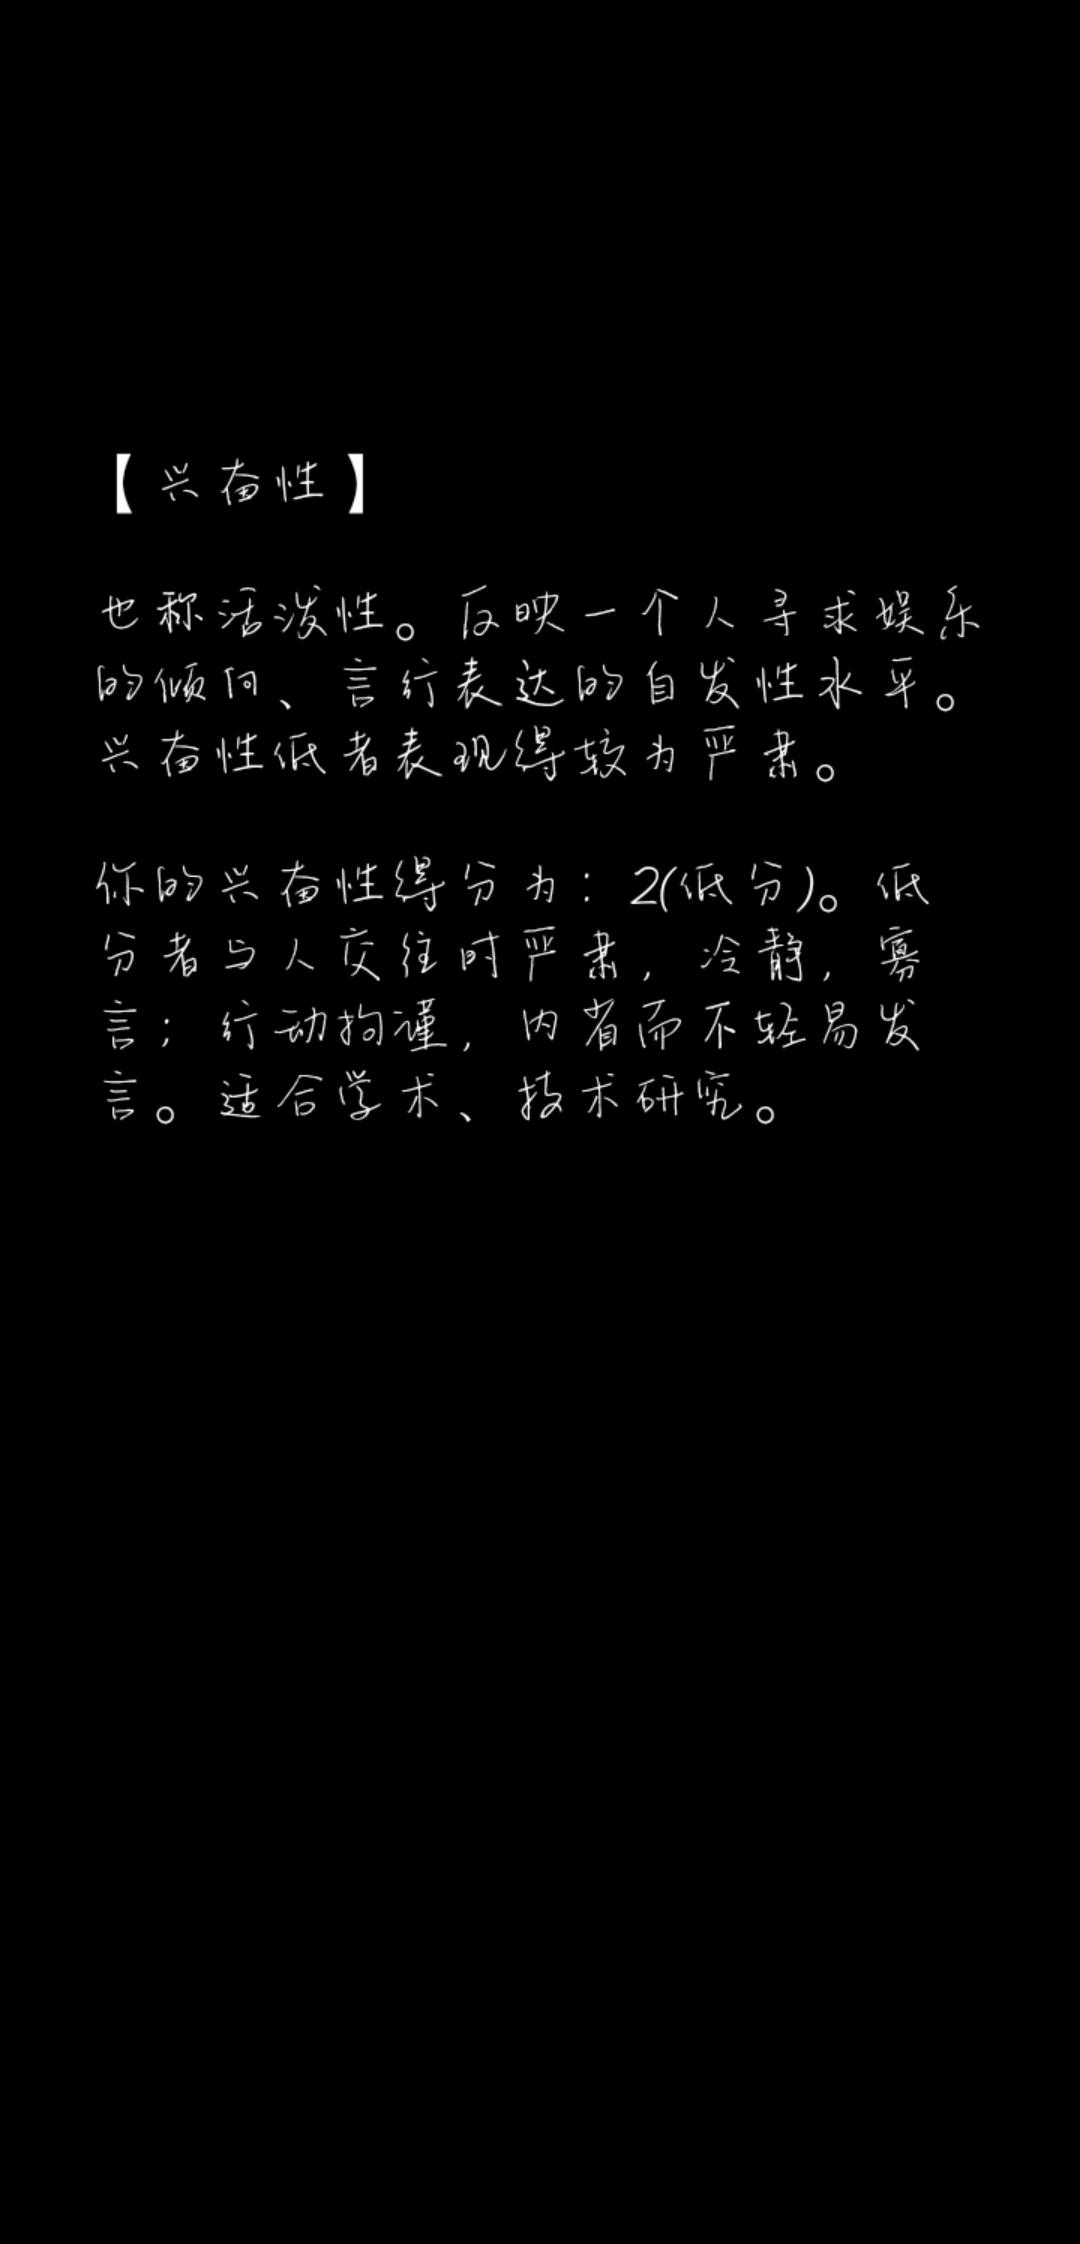 【兴奋性】
也称活泼性。反映一个人寻求娱乐
的倾向、言行表达的自发性水平。
兴奋性低者表现得较为严肃。
你的兴奋性得分为：2(低分)。低
分者与人交往时严肃，冷静，寡
言；行动拘谨，内省而不轻易发
言。适合学术、技术研究。